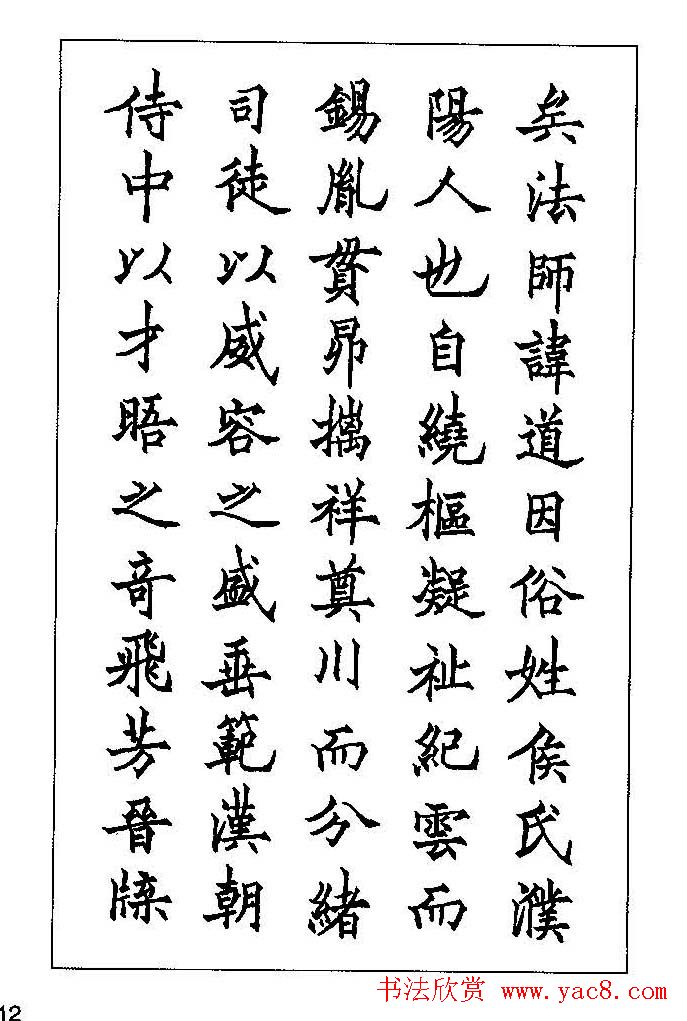 矣法師諱道因俗姓侯氏濮
陽人也自繞樞凝祉紀雲而
錫胤貫昴摛祥奠川而分緒
司徒以威容之盛垂範漢朝
侍中以才晤之奇飛芳晉牒
12
书法欣赏 www.yac8.com